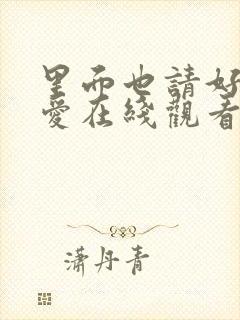 里而也請好
愛在綫觀看
瀟丹青